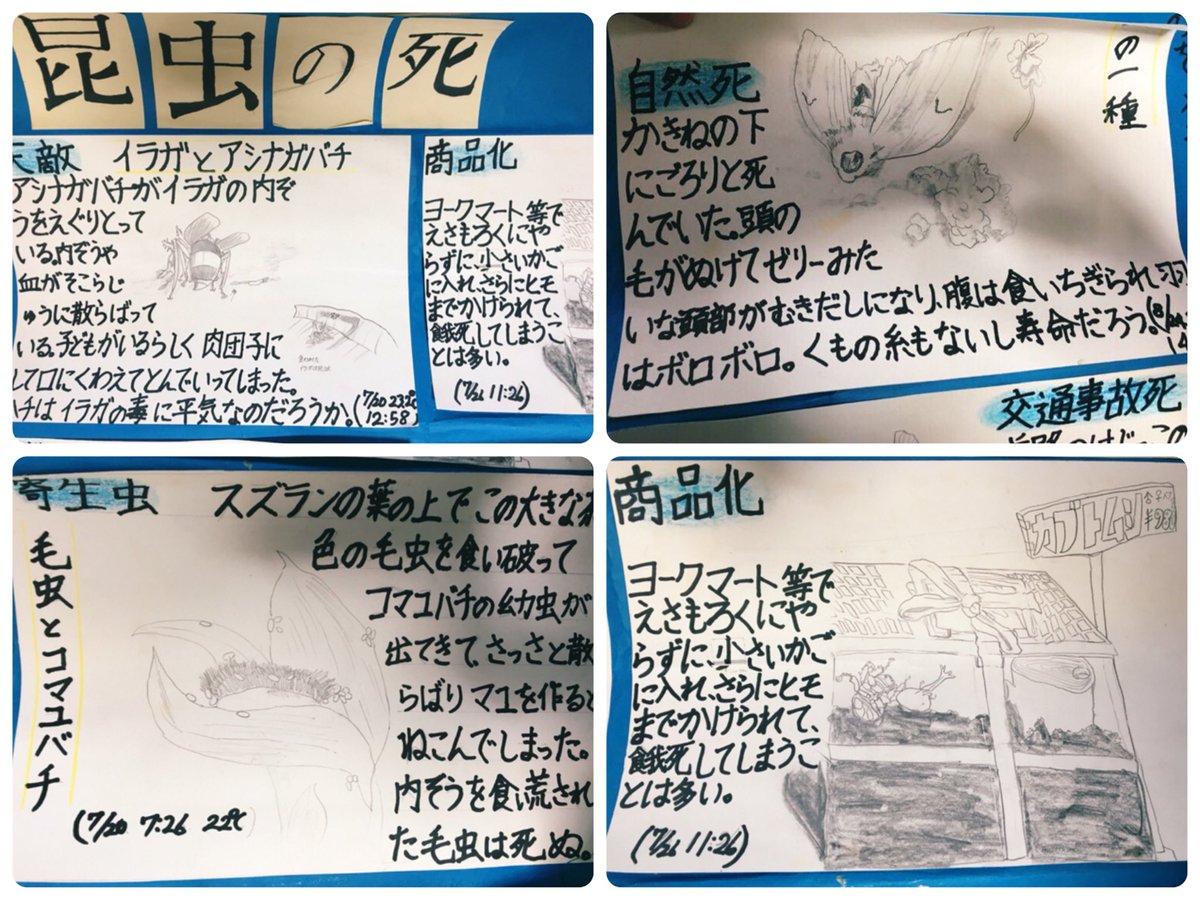 昆虫の死
天敵 イラガとアシナガバチ
アシナガバチがイラガの内ぞ
うをえぐりとって
いる。内ぞうや
血がそこらじ
ゅうに散らばって
いる。子どもがいるらしく肉団子に
して口にくわえてとんでいってしまった。
ハチはイラガの毒に平気なのだろうか。(7/20 23.2℃
12:58)
商品化
ヨークマート等で
えさもろくにや
らずに、小さいかご
に入れ、さらにヒモ
までかけられて、
餓死してしまうこ
とは多い。
(7/26 11:26)
の一種
自然死
かきねの下
にごろりと死
んでいた。頭の
毛がぬけてゼリーみた
いな頭部がむきだしになり、腹は食いちぎられ、羽
はボロボロ。くもの糸もないし寿命だろう。
交通事故死
寄生虫
毛虫とコマユバチ
スズランの葉の上でこの大きな
色の毛虫を食い破って
コマユバチの幼虫が
出てきて、さっさと散
らばりマユを作ると
ねこんでしまった。
内ぞうを食い荒され
た毛虫は死ぬ。
(7/20 7:26 22℃
商品化
カブトムシ
ヨークマート等で
えさもろくにや
らずに、小さいかご
に入れ、さらにヒモ
までかけられて、
餓死してしまうこ
とは多い。
(7/26 11:26)